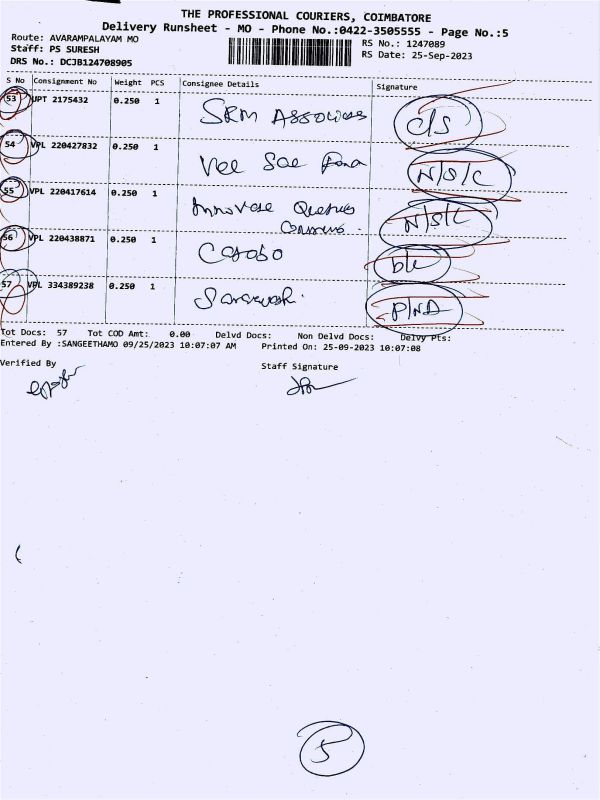 THE PROFESSIONAL COURIERS, COIMBATORE
Delivery Runsheet - MO - Phone No.:0422-3505555 - Page No.:5
Route: AVARAMPALAYAM MO
RS No.: 1247089
Staff: PS SURESH
RS Date: 25-Sep-2023
DRS No.: DCJB124708905
S No Consignment No Weight PCS Consignee Details Signature
53 UPT 2175432 0.250 1 SRM c/s
54 VPL 220427832 0.250 1 Vee Sae N/S/C
55 VPL 220417614 0.250 1 N/S/C
56 VPL 220438871 0.250 1
57 VPL 334389238 0.250 1 P/ND
Tot Docs: 57 Tot COD Amt: 0.00 Delvd Docs: Non Delvd Docs: Delvy Pts:
Entered By :SANGEETHAMO 09/25/2023 10:07:07 AM Printed On: 25-09-2023 10:07:08
Verified By
Staff Signature
5